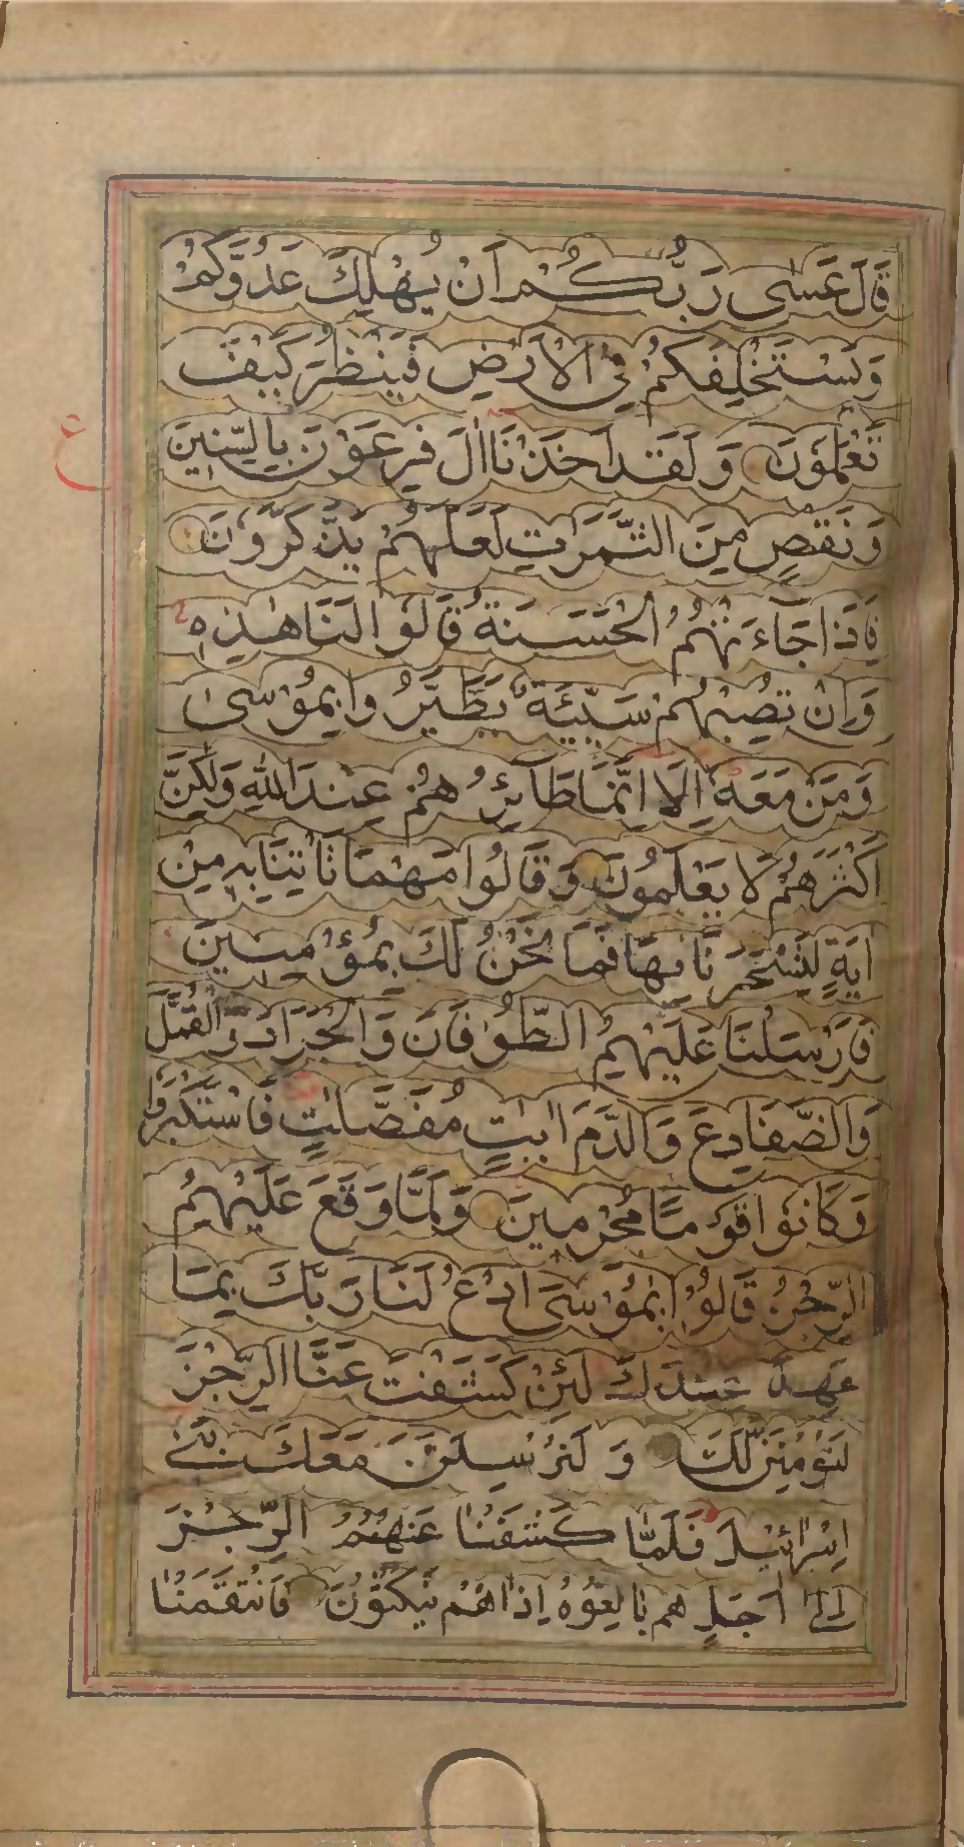 قَالَ عَسٰى رَبُّكُمْ اَنْ يُهْلِكَ عَدُوَّكُمْ
وَيَسْتَخْلِفَكُمْ فِي الْاَرْضِ فَيَنْظُرَ كَيْفَ
تَعْمَلُوْنَ وَلَقَدْ اَخَذْنَا اٰلَ فِرْعَوْنَ بِالسِّنِيْنَ
وَنَقْصٍ مِنَ الثَّمَرَاتِ لَعَلَّهُمْ يَذَّكَّرُوْنَ
فَاِذَا جَاءَتْهُمُ الْحَسَنَةُ قَالُوْا لَنَا هٰذِهٖ
وَاِنْ تُصِبْهُمْ سَيِّئَةٌ يَطَّيَّرُوْا بِمُوْسٰى
وَمَنْ مَعَهٗ اَلَا اِنَّمَا طَآئِرُهُمْ عِنْدَ اللّٰهِ وَلٰكِنَّ
اَكْثَرَهُمْ لَا يَعْلَمُوْنَ وَقَالُوْا مَهْمَا تَاْتِنَا بِهٖ مِنْ
اٰيَةٍ لِتَسْحَرَنَا بِهَا فَمَا نَحْنُ لَكَ بِمُؤْمِنِيْنَ
فَاَرْسَلْنَا عَلَيْهِمُ الطُّوْفَانَ وَالْجَرَادَ وَالْقُمَّلَ
وَالضَّفَادِعَ وَالدَّمَ اٰيٰتٍ مُفَصَّلٰتٍ فَاسْتَكْبَرُوْا
وَكَانُوْا قَوْمًا مُجْرِمِيْنَ وَلَمَّا وَقَعَ عَلَيْهِمُ
الرِّجْزُ قَالُوْا يٰمُوْسَى ادْعُ لَنَا رَبَّكَ بِمَا
عَهِدَ عِنْدَكَ لَئِنْ كَشَفْتَ عَنَّا الرِّجْزَ
لَنُؤْمِنَنَّ لَكَ وَلَنُرْسِلَنَّ مَعَكَ بَنِيْ
اِسْرَائِيْلَ فَلَمَّا كَشَفْنَا عَنْهُمُ الرِّجْزَ
اِلٰى اَجَلٍ هُمْ بَالِغُوْهُ اِذَا هُمْ يَنْكُثُوْنَ فَانْتَقَمْنَا
ع